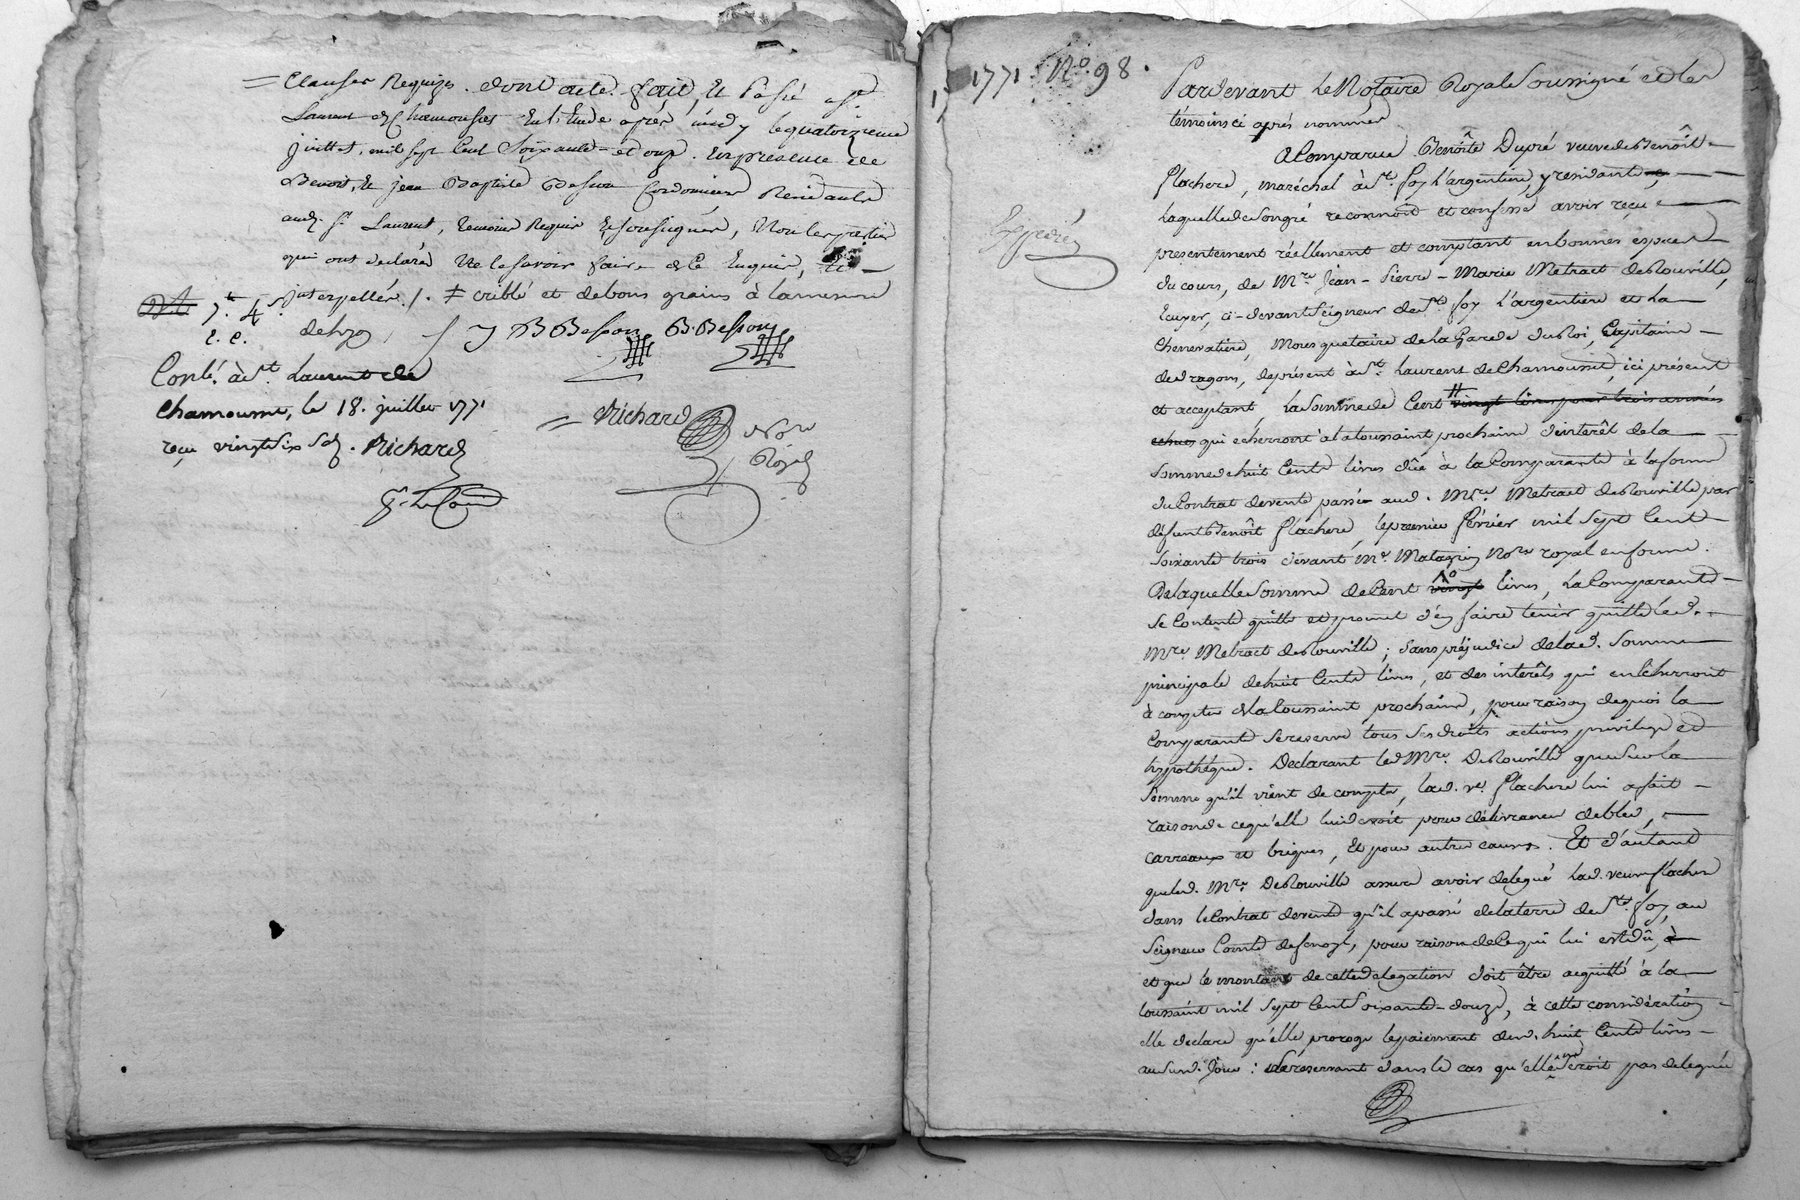 = Clauses Requises. dont acte. fait, Et Passé a St.
Laurent de Chamousset En l'Etude après midy le quatorzieme
juillet, mil sept Cent Soixante-et onze. En presence de
Benoit, Et jean Baptiste Besson Cordonniers Residants
aud. St. Laurent, temoins Requis Et soussignés, Non les parties
qui ont declaré Ne le savoir faire de Ce Enquis, Et
interpellés ./. ‡ criblé et de bons grains à la mesure
7. 4s.
E. C.
J B Besson B. Besson
Conlé. à St. Laurent de
Chamousset, le 18. juillet 1771
reçu vingt six sols. Richard
= Richard Nore
Royal
1771 No. 98.
Pardevant Le Notaire Royal Soussigné et les
témoins ci après nommés
A Comparue Benoîte Dupré veuve de Benoît
flachere, maréchal à Ste. foy L'argentiere, y residante,
Laquelle de son gré reconnoit et confesse avoir reçu
presentement réellement et comptant en bonnes especes
du cours, de Mre. Jean-Pierre-Marie Metract de Rouville,
Ecuyer, ci-devant Seigneur de Ste. foy L'argentiere et La
Chenevatiere, Mousquetaire de La Garde du Roi, Capitaine
de dragons, de présent à St. Laurent de Chamousset, ici présent
et acceptant, La Somme de Cent # vingt livres pour trois années
echues qui echerront à la toussaint prochaine d'interêt de la
Somme de huit Cents livres dûe à la Comparante à la forme
du Contrat de vente passée aud. Mre. Metract de Rouville par
défunt Benoît flachere, le premier février mil Sept Cent
Soixante trois devant Me. Matagrin Nore. royal en forme.
De laquelle Somme de Cent vingt livres, La Comparante
Se Contente quitte et promet d'en faire tenir quitte led.
Mre. Metract de Rouville; Sans préjudice de lad. Somme
principale de huit Cents livres, et des intérêts qui en echerront
à compter de la toussaint prochaine, pour raison de quoi la
Comparante Se reserve tous Ses droits actions privilege et
hypothéque. Declarant led. Mre. De Rouville que Sur la
Somme qu'il vient de compter, lad. ve. flachere lui a fait
raison de ce qu'elle lui devoit pour délivrance de bled,
carreaux et briques, Et pour autres causes. Et d'autant
que led. Mre. De Rouville assure avoir delegué lad. veuve flachere
dans le Contrat de vente qu'il a passé de la terre de Ste. foy, au
Seigneur Comte de fenoyl, pour raison de Ce qui lui est dû,
et que le montant de cette delegation doit être acquitté à la
toussaint mil Sept Cent Soixante-douze, à cette considération
elle declare qu'elle proroge le paiement desd. huit Cents livres
audit. Jour: Se reservant dans le cas qu'elle ne seroit pas deleguée